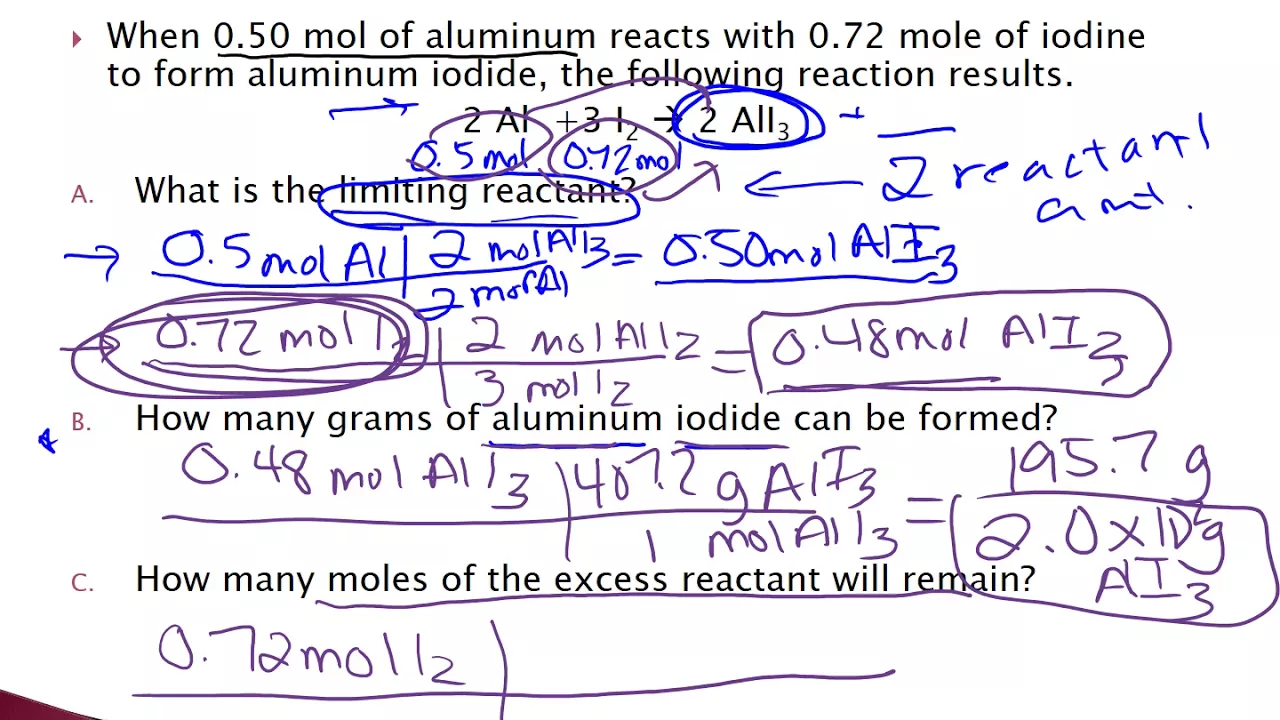 When 0.50 mol of aluminum reacts with 0.72 mole of iodine
to form aluminum iodide, the following reaction results.
2 Al + 3 I₂ → 2 AlI₃
0.5 mol 0.72 mol
2 reactant
amt.
A. What is the limiting reactant?
0.5 mol Al | 2 mol AlI3 = 0.50 mol AlI3
2 mol Al
0.72 mol I2 | 2 mol AlI2 = 0.48 mol AlI3
3 mol I2
B. How many grams of aluminum iodide can be formed?
0.48 mol AlI3 | 407.2 g AlI3 = 195.7 g
1 mol AlI3
2.0 x 10² g
AlI3
C. How many moles of the excess reactant will remain?
0.72 mol I2 |